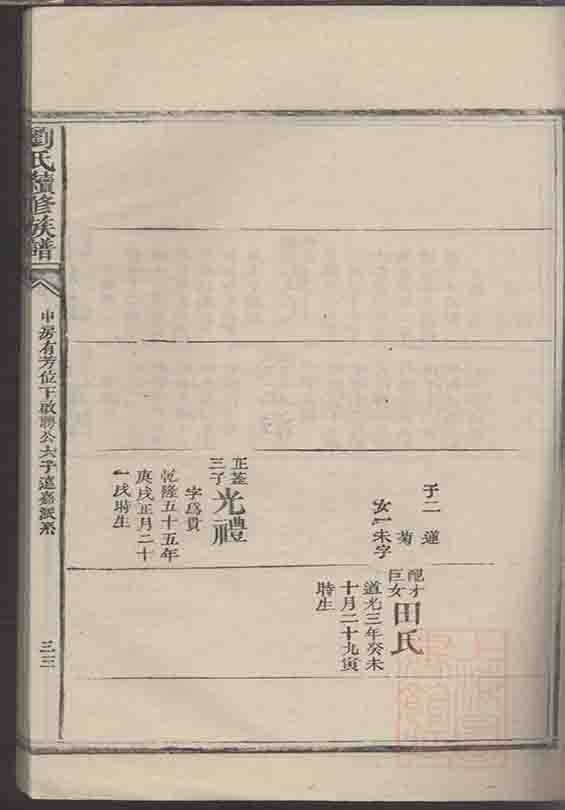 子二 蓮
菊
女一未字
配才
巨女
田氏
道光三年癸未
十月二十九寅
時生
正荃
三子
光禮
字爲貫
乾隆五十五年
庚戌正月二十
一戌時生
劉氏續修族譜
申房有芳位下啟聘公六子連嘉派系
三三